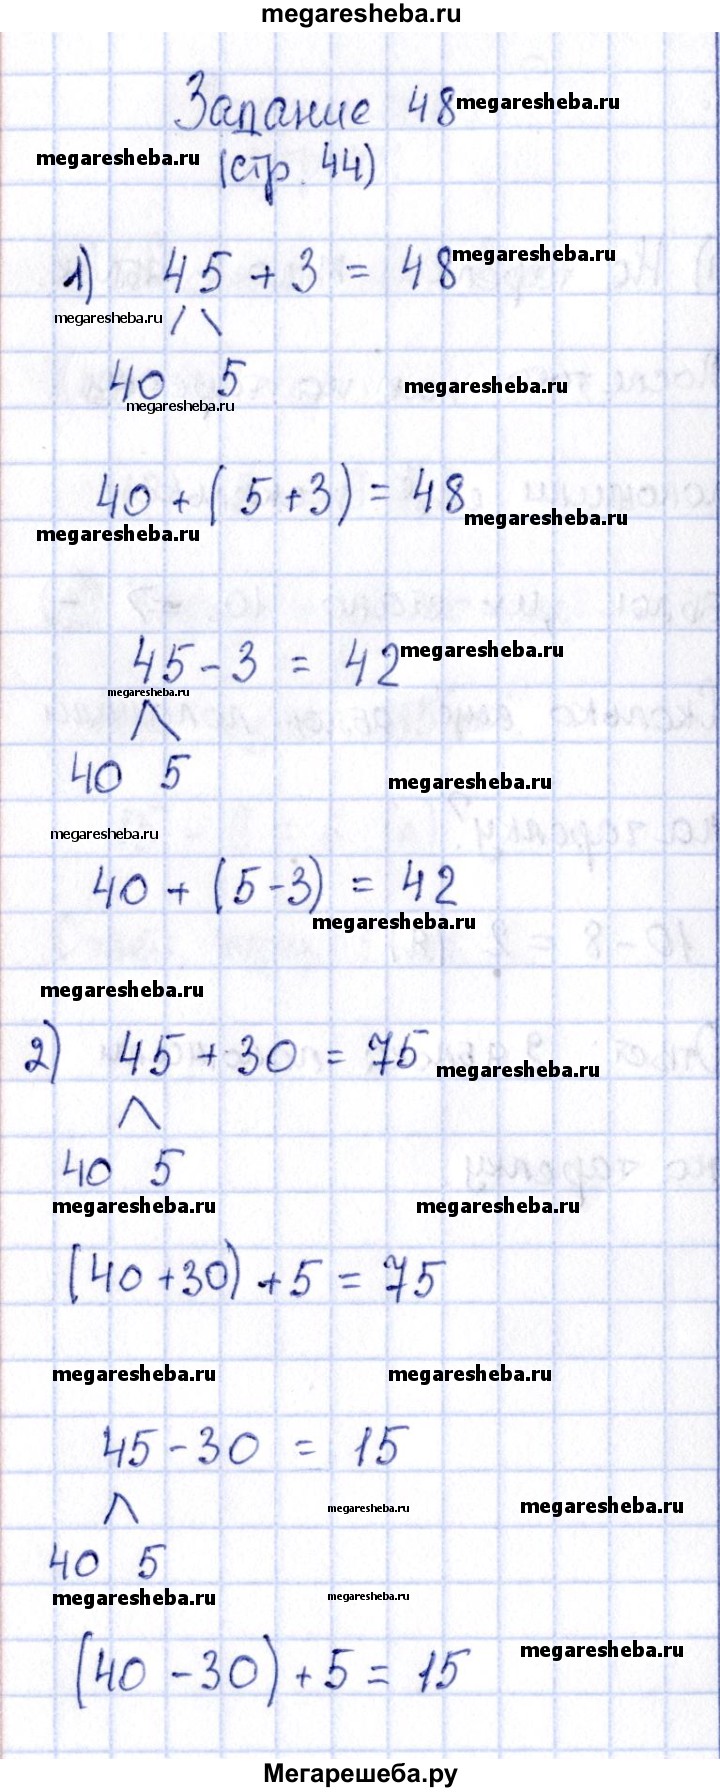 megaresheba.ru
Задание 48 megaresheba.ru
megaresheba.ru (стр. 44)
1) 45 + 3 = 48 megaresheba.ru
megaresheba.ru
40 5 megaresheba.ru
megaresheba.ru
40 + (5+3) = 48
megaresheba.ru megaresheba.ru
45 - 3 = 42 megaresheba.ru
megaresheba.ru
40 5 megaresheba.ru
megaresheba.ru
40 + (5-3) = 42
megaresheba.ru
megaresheba.ru
2) 45 + 30 = 75 megaresheba.ru
40 5
megaresheba.ru megaresheba.ru
(40 + 30) + 5 = 75
megaresheba.ru megaresheba.ru
45 - 30 = 15
megaresheba.ru megaresheba.ru
40 5
megaresheba.ru megaresheba.ru
(40 - 30) + 5 = 15 megaresheba.ru
Мегарешеба.ру